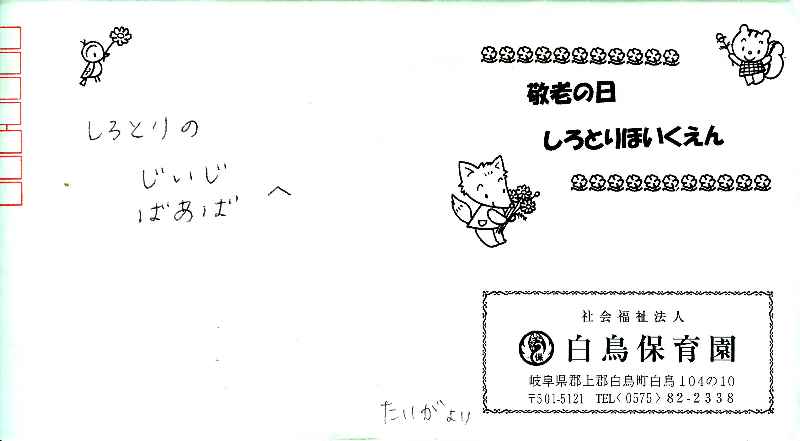 敬老の日
しろとりほいくえん
しろとりの
じいじ
ばあば へ
たいがより
社会福祉法人
白鳥保育園
岐阜県郡上郡白鳥町白鳥104の10
〒501-5121 TEL〈0575〉82-2338